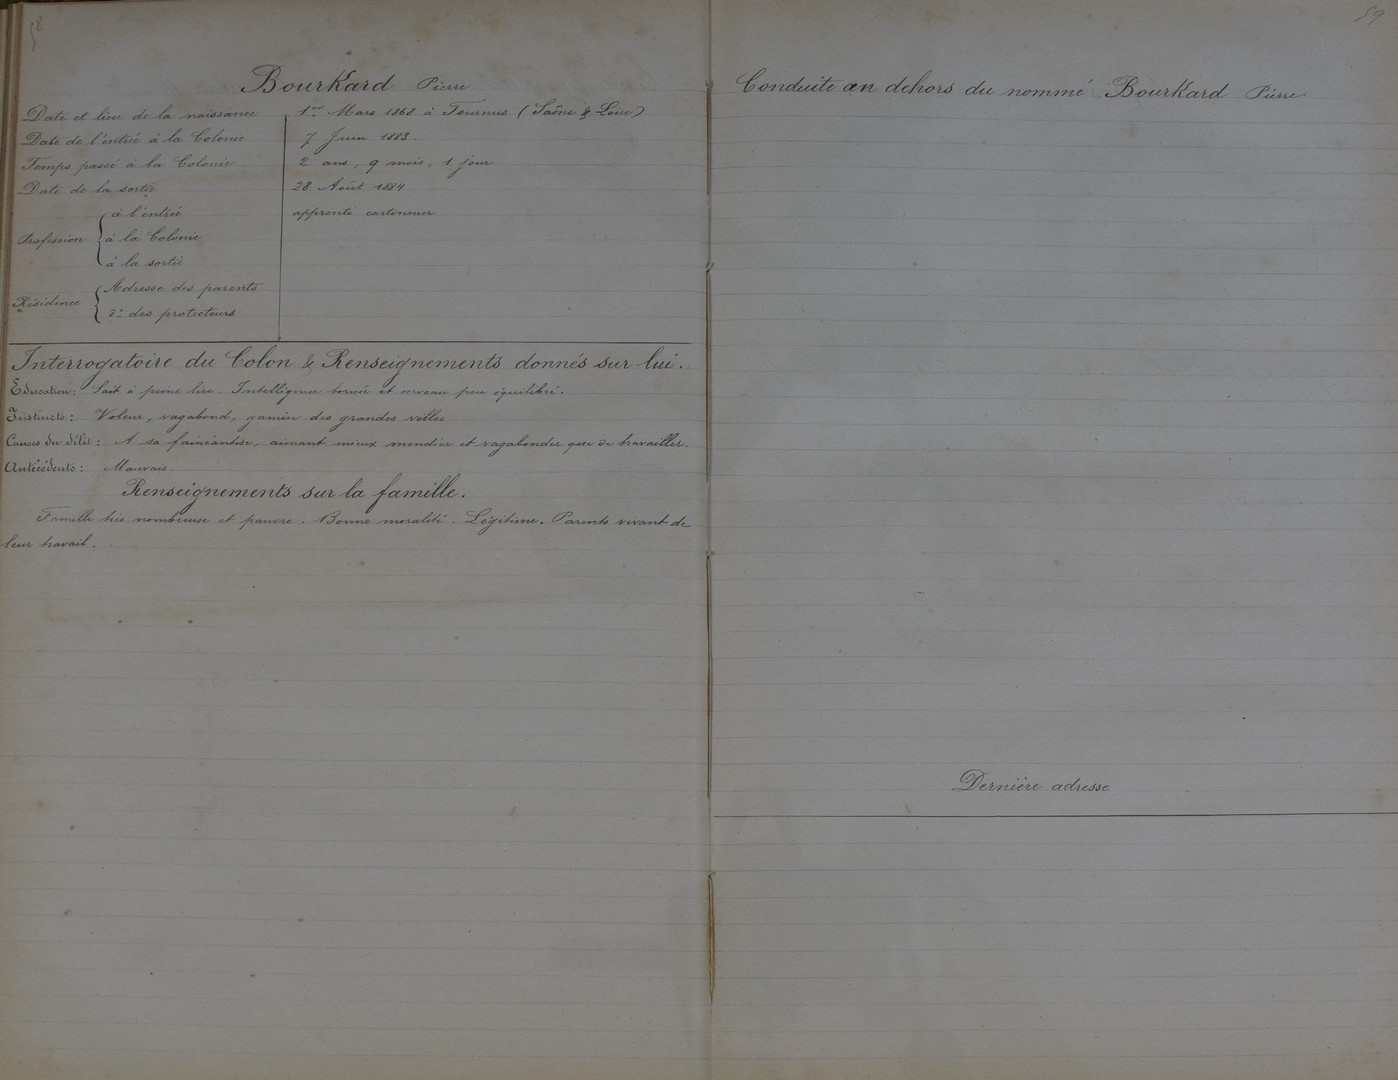 58
Bourkard Pierre
Date et lieu de la naissance 1er Mars 1868 à Tournus (Saône & Loire)
Date de l'entrée à la Colonie 7 Juin 1883.
Temps passé à la Colonie 2 ans, 9 mois, 1 jour
Date de la sortie 28 Août 1884
Profession
à l'entrée apprenti cartonnier
à la Colonie
à la sortie
Résidence
Adresse des parents
do des protecteurs
Interrogatoire du Colon & Renseignements donnés sur lui.
Education: Sait à peine lire. Intelligence bornée et cerveau peu équilibré.
Instincts: Voleur, vagabond, gamin des grandes villes
Causes du délit: A sa fainéantise, aimant mieux mendier et vagabonder que de travailler.
Antécédents: Mauvais
Renseignements sur la famille.
Famille très nombreuse et pauvre. Bonne moralité. Légitime. Parents vivant de
leur travail.
59
Conduite en dehors du nommé Bourkard Pierre
Dernière adresse